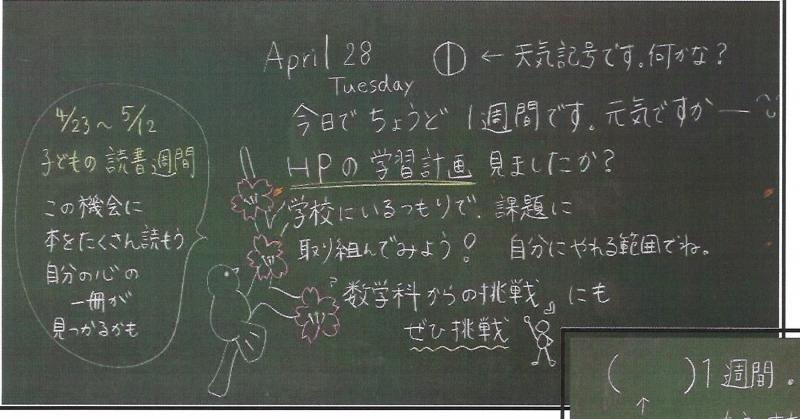 April 28
Tuesday
← 天気記号です。何かな？
今日でちょうど1週間です。元気ですかー
HPの学習計画 見ましたか？
学校にいるつもりで、課題に
取り組んでみよう！ 自分にやれる範囲でね。
『数学科からの挑戦』にも
ぜひ挑戦
4/23～5/12
子どもの読書週間
この機会に
本をたくさん読もう
自分の心の
一冊が
見つかるかも
(　　)1週間.
↑